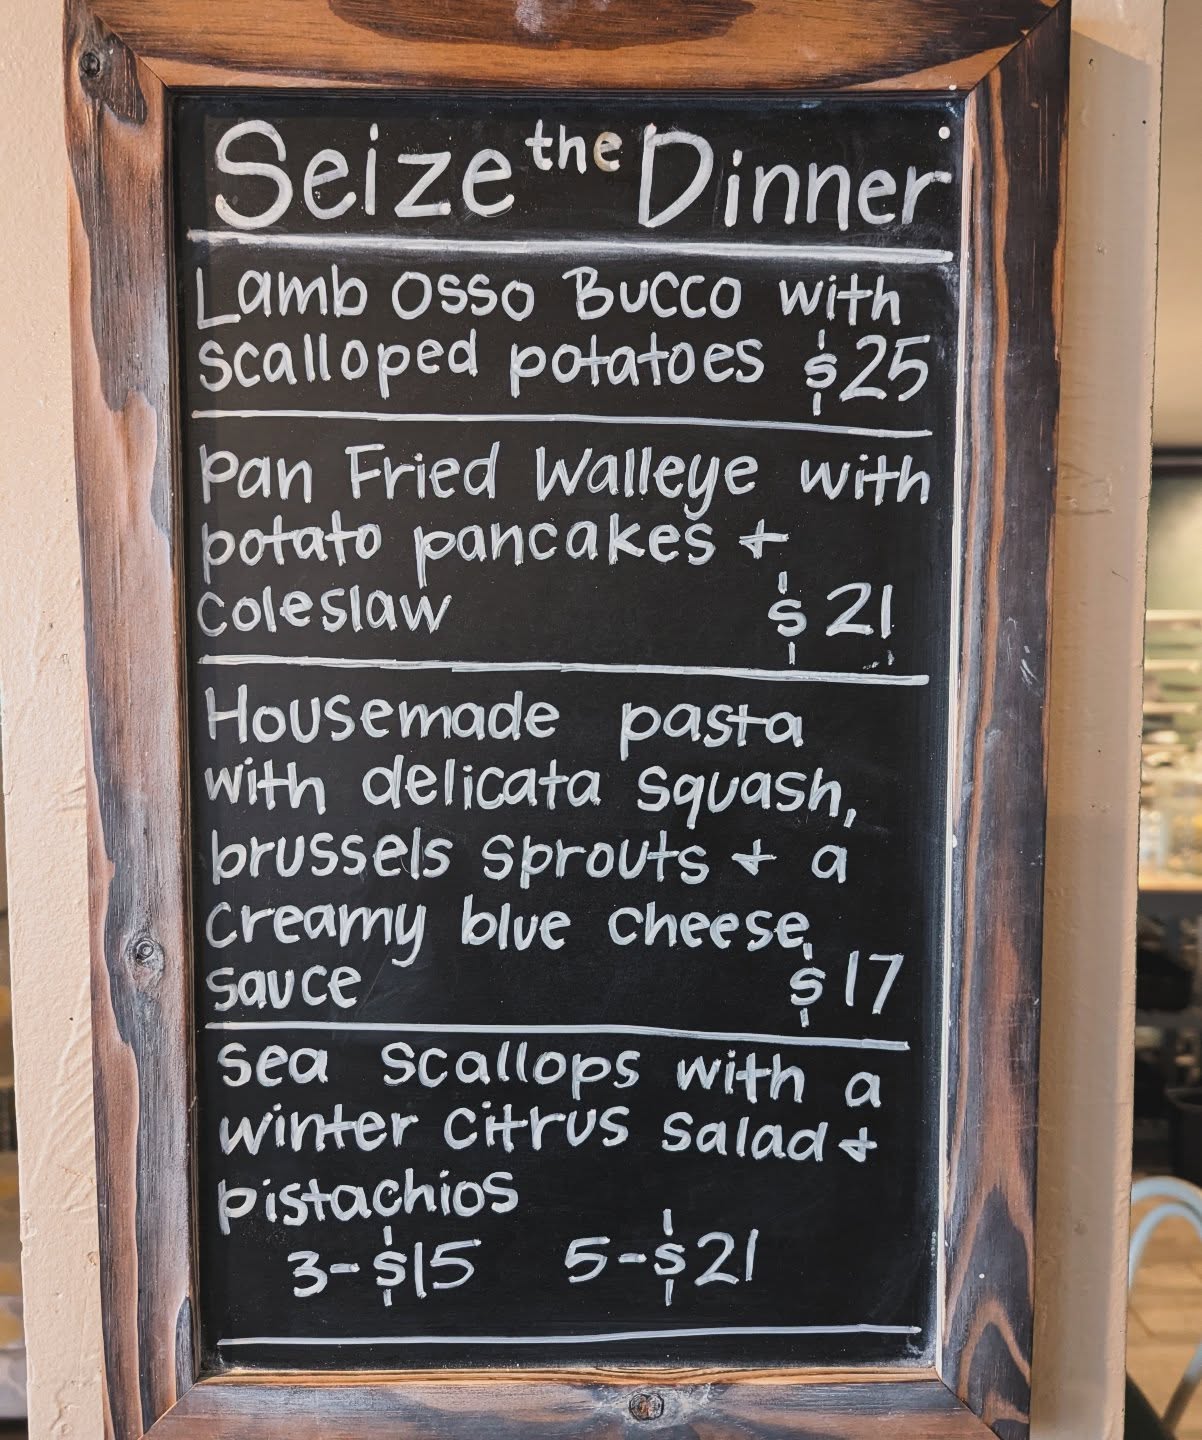 Seize the Dinner
Lamb Osso Bucco with
scalloped potatoes $25
Pan Fried Walleye with
potato pancakes +
coleslaw $21
Housemade pasta
with delicata squash,
brussels sprouts + a
creamy blue cheese
sauce $17
Sea Scallops with a
winter citrus salad +
pistachios
3-$15 5-$21